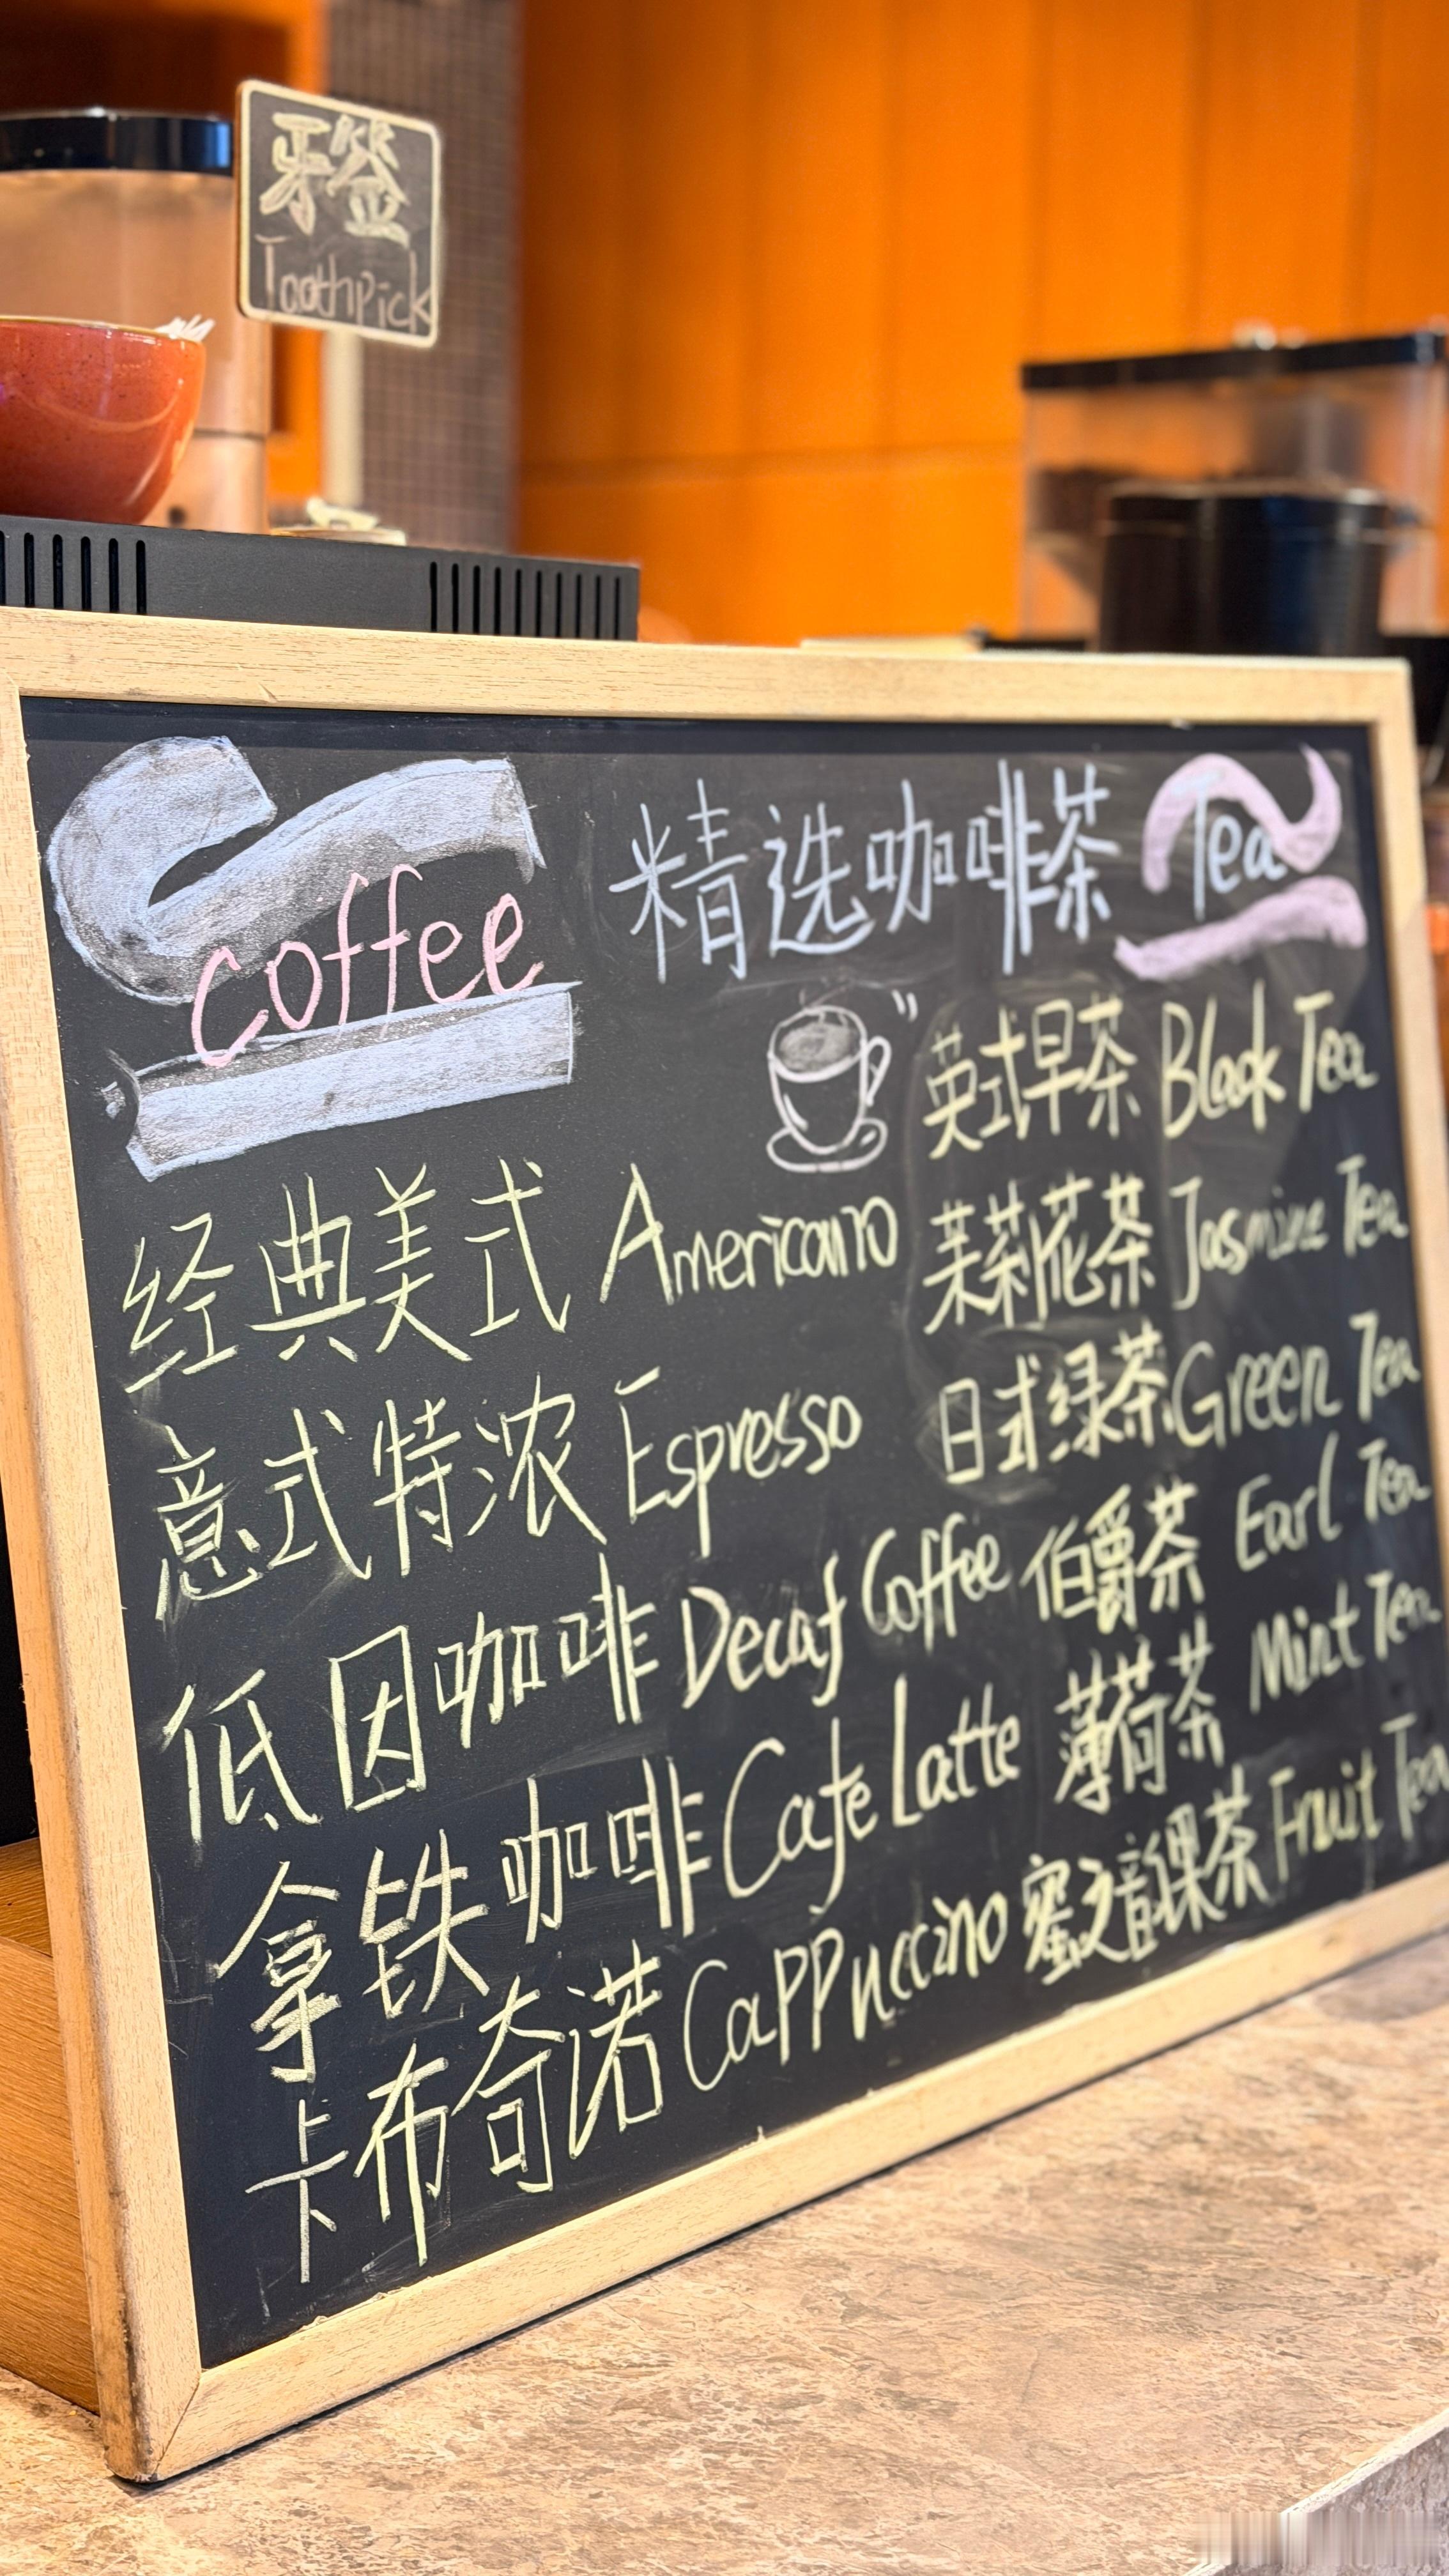 牙签
Toothpick
coffee
精选咖啡茶 Tea
经典美式 Americano
意式特浓 Espresso
低因咖啡 Decaf Coffee
拿铁咖啡 Cafe Latte
卡布奇诺 Cappuccino
英式早茶 Black Tea
茉莉花茶 Jasmine Tea
日式绿茶 Green Tea
伯爵茶 Earl Tea
薄荷茶 Mint Tea
蜜之韵果茶 Fruit Tea